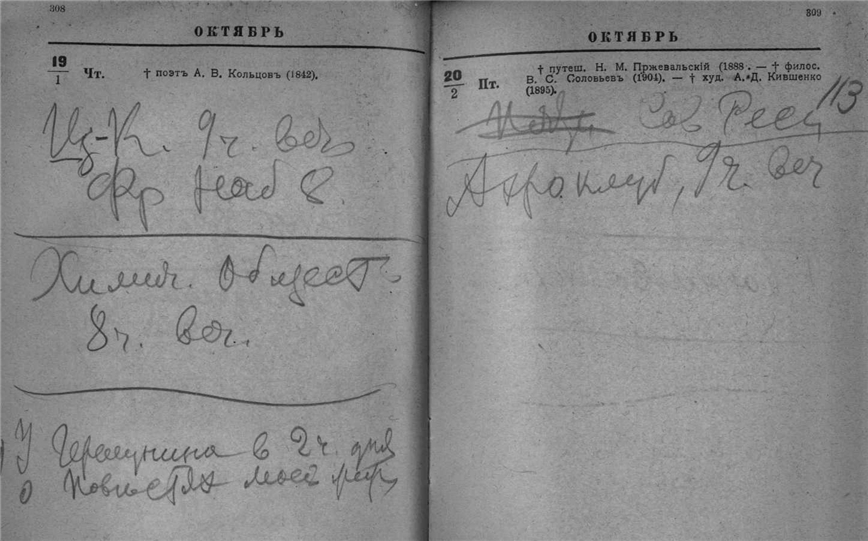 308
ОКТЯБРЬ
19
1
Чт.
† поэтъ А. В. Кольцовъ (1842).
Цз-К. 9 ч. веч
Фр Наб 8.
Химич. Общест
8 ч. веч.
У в 2 ч. дня
о моей
309
ОКТЯБРЬ
20
2
Пт.
† путеш. Н. М. Пржевальскій (1888. — † филос.
В. С. Соловьевъ (1904). — † худ. А. Д. Кившенко
(1895).
113
Сов
Аэроклуб, 9 ч. веч